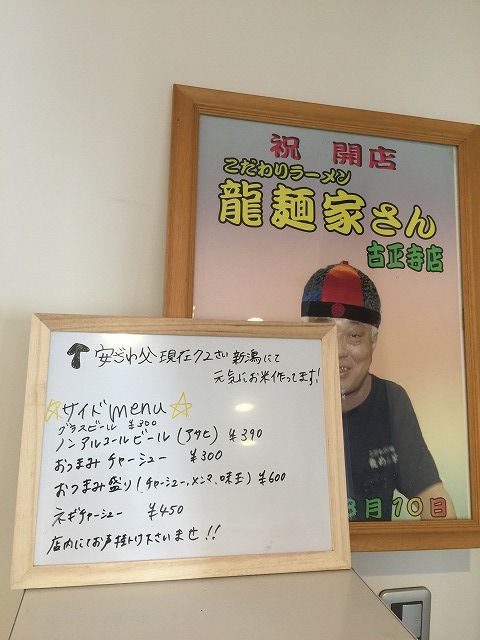 祝 開店
こだわりラーメン
龍麺家さん
古正寺店
8月10日
安ざわ父 現在72さい 新潟にて
元気にお米作ってます!
☆サイドmenu☆
グラスビール ¥300
ノンアルコールビール(アサヒ) ¥390
おつまみチャーシュー ¥300
おつまみ盛り(チャーシュー、メンマ、味玉) ¥600
ネギチャーシュー ¥450
店内にてお声掛け下さいませ!!